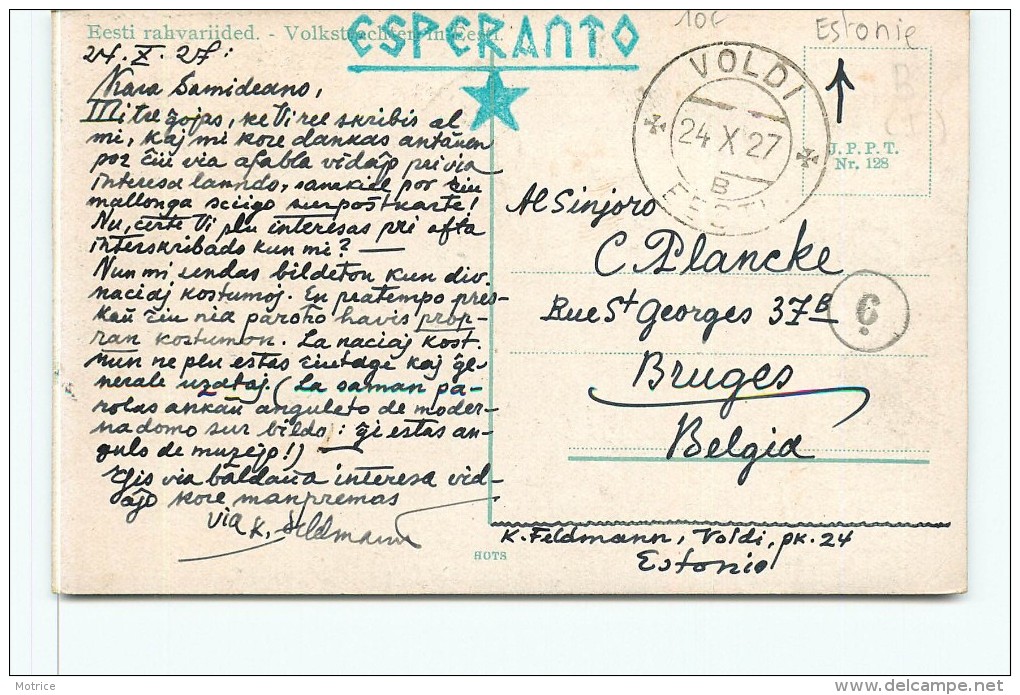 Eesti rahvariided. - Volkstrachten in Eesti.
ESPERANTO
10€
Estonie
24. X. 27:
Kara Samideano,
Mi tre ĝojas, ke Vi ree skribis al
mi, kaj mi kore dankas antaŭen
por ĉiu via afabla vidaĵo pri via
interesa lando, samkiel por ĉiu
mallonga sciigo sur poŝtkarte!
Nu, ĉerte Vi plu interesas pri ofta
interskribado kun mi? —
Nun mi sendas bildeton kun div.
naciaj kostumoj. En pratempo pres-
kaŭ ĉiu nia paroĥo havis prop-
ran kostumon. La naciaj kost.
nun ne plu estas ĉiutage kaj ĝe-
nerale uzataj. (La saman pa-
rolas ankaŭ anguleto de moder-
na domo sur bildo: ĝi estas an-
gulo de muzejo!) —
Ĝis via baldaŭa interesa vid-
aĵo kore manpremas
via K. Feldmann
VOLDI
24 X 27
B
EESTI
J. P. P. T.
Nr. 128
Al Sinjoro
C. Plancke
Rue St Georges 37B
Bruges
Belgio
6
K. Feldmann, Voldi, pk. 24
Estonio
HOTS
Motrice
www.delcampe.net